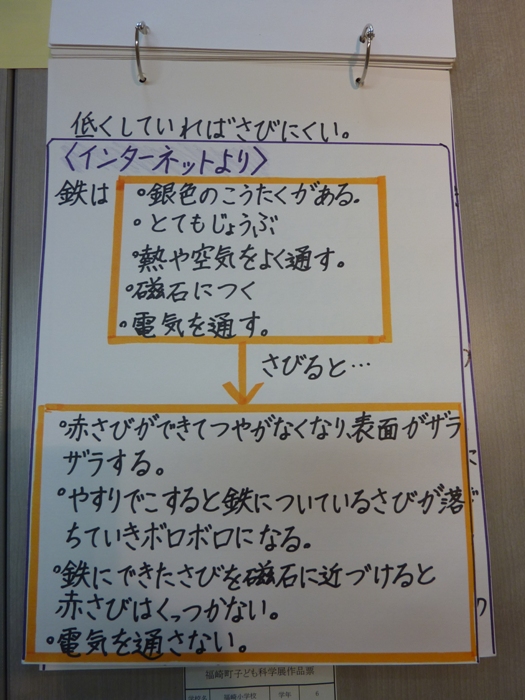 低くしていればさびにくい。
〈インターネットより〉
鉄は
・銀色のこうたくがある。
・とてもじょうぶ
・熱や空気をよく通す。
・磁石につく
・電気を通す。
さびると…
・赤さびができてつやがなくなり、表面がザラ
ザラする。
・やすりでこすると鉄についているさびが落
ちていきボロボロになる。
・鉄にできたさびを磁石に近づけると
赤さびはくっつかない。
・電気を通さない。
福崎町子ども科学展作品票
学校名 福崎小学校 学年 6